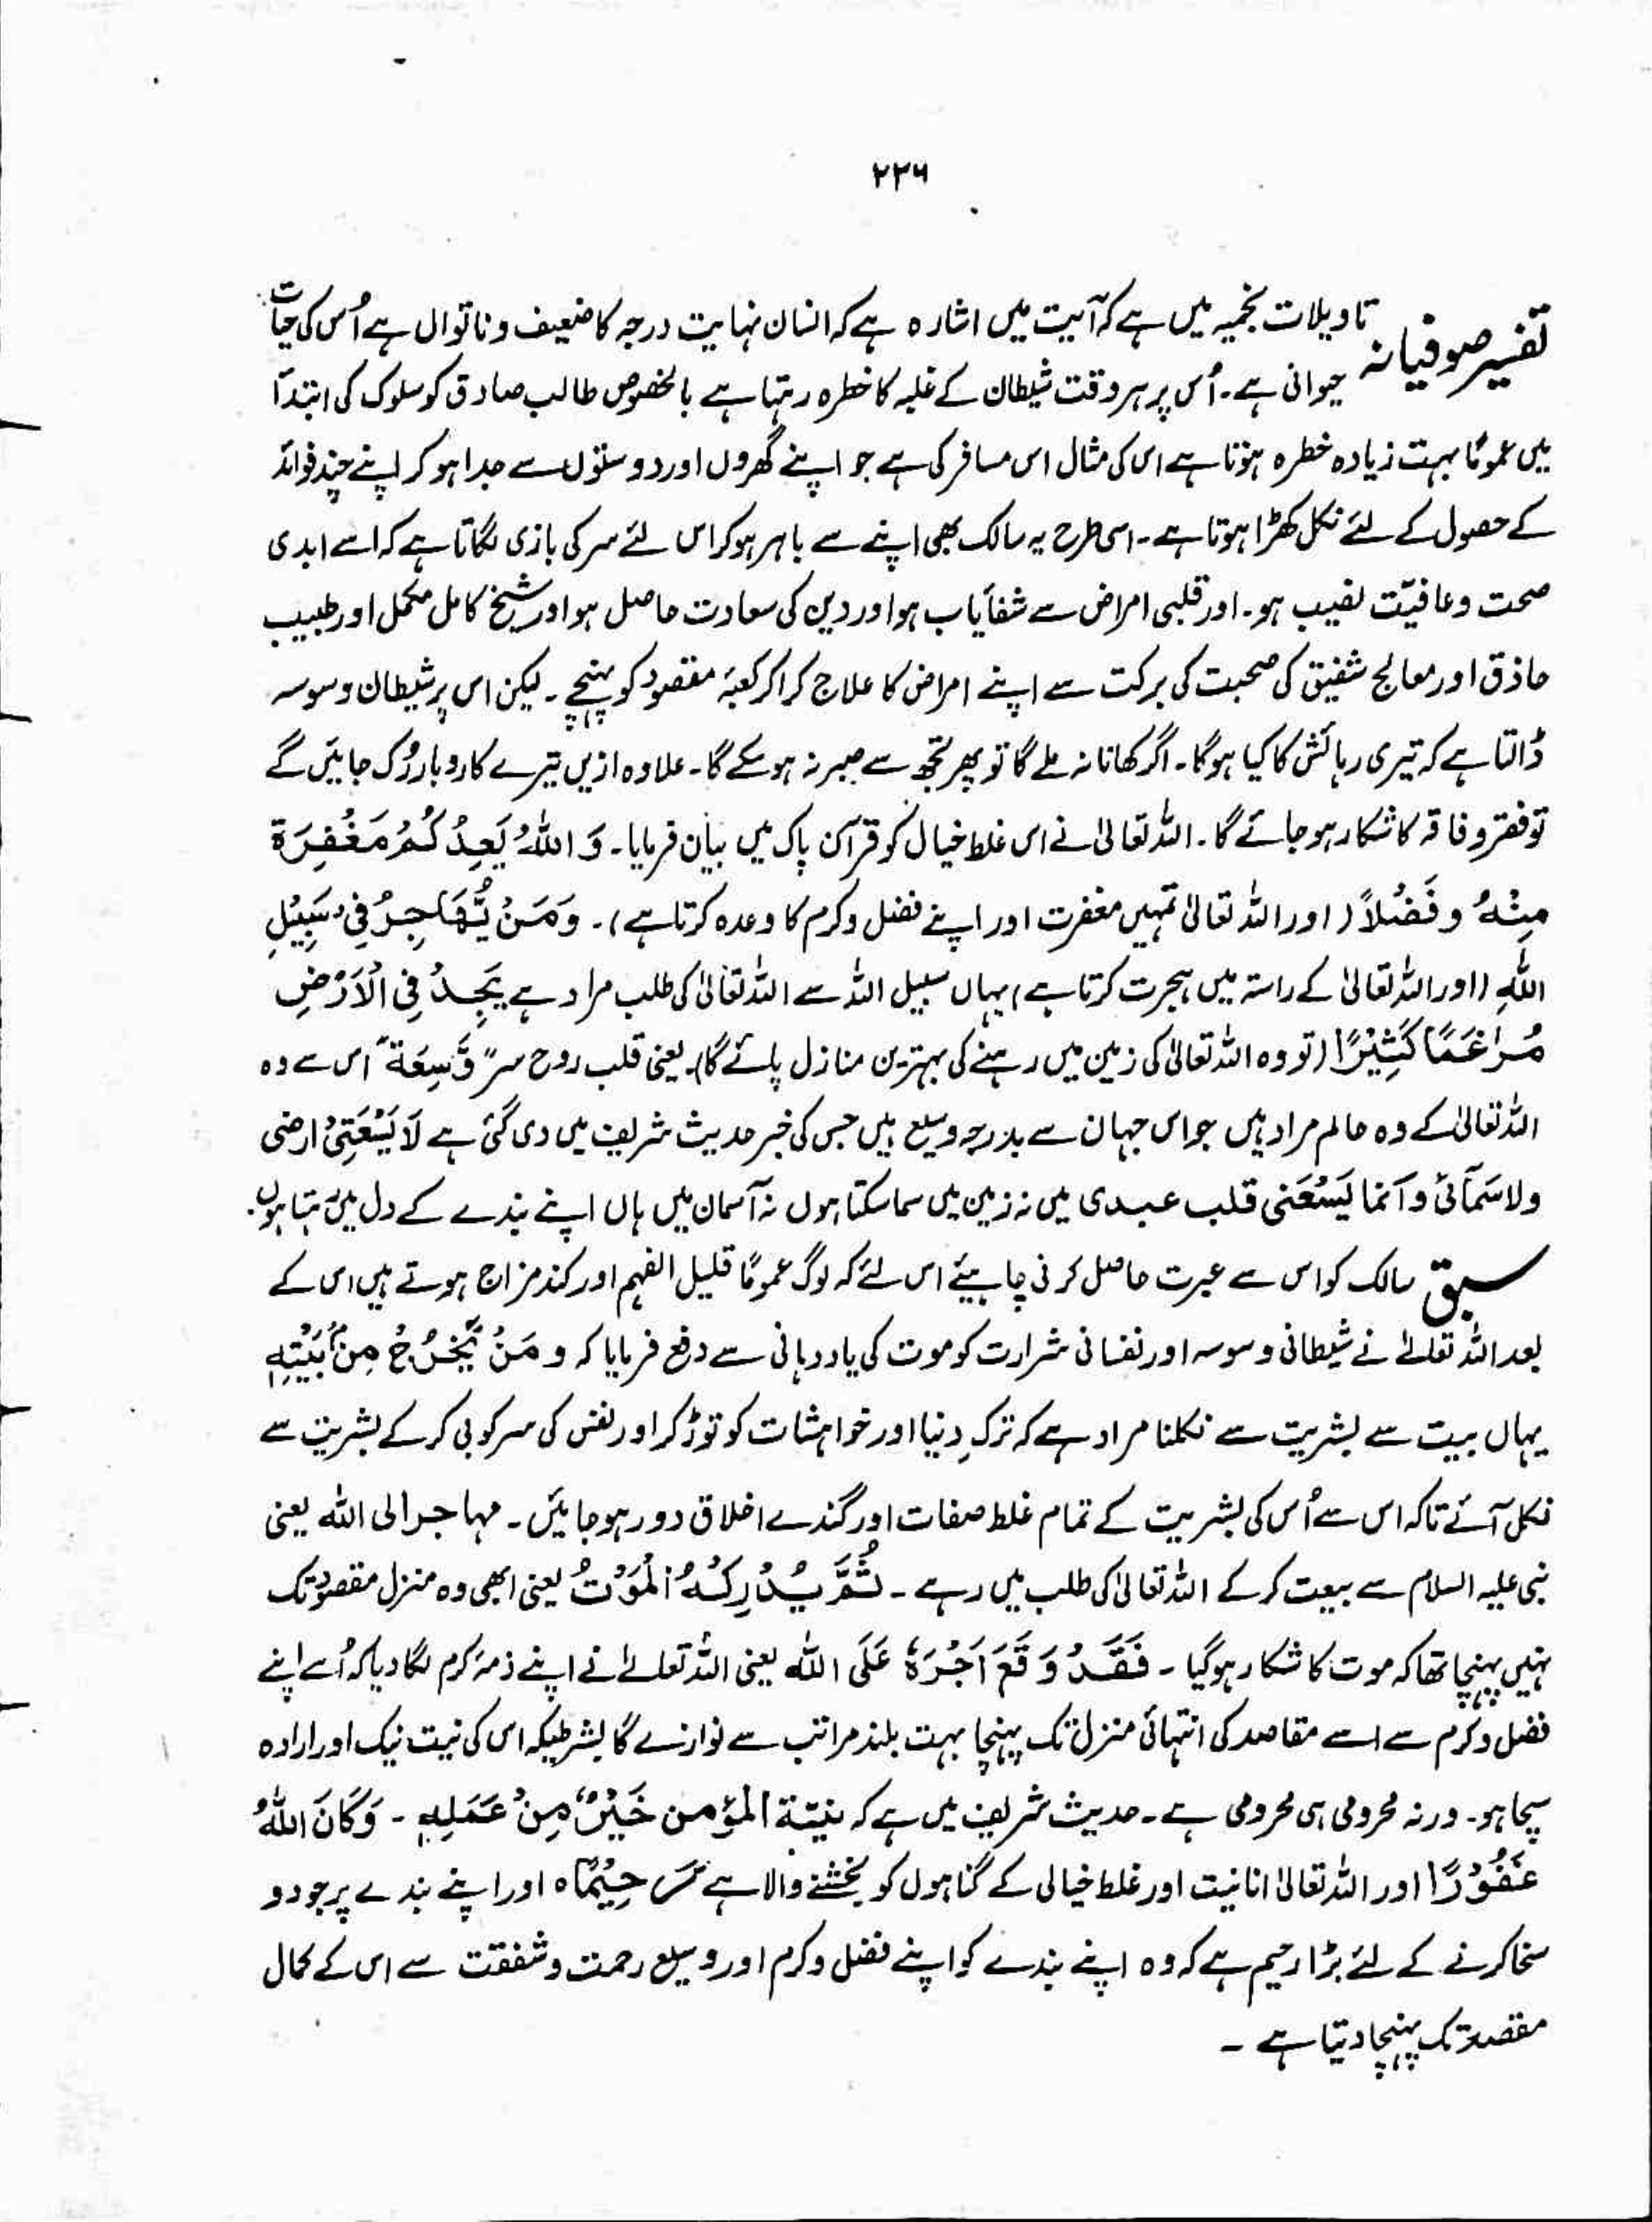 ۲۳۶
تفسیر صوفیانہ تاویلات نجمیہ میں ہے کہ آیت میں اشارہ ہے کہ انسان نہایت درجہ کا ضعیف و ناتواں ہے اُس کی حیات
حیوانی ہے۔ اُس پر ہر وقت شیطان کے غلبہ کا خطرہ رہتا ہے بالخصوص طالب صادق کو سلوک کی ابتدأ
میں عموماً بہت زیادہ خطرہ ہوتا ہے اس کی مثال اس مسافر کی ہے جو اپنے گھروں اور دوستوں سے جدا ہو کر اپنے چند فوائد
کے حصول کے لئے نکل کھڑا ہوتا ہے۔ اسی طرح یہ سالک بھی اپنے سے باہر ہو کر اس لئے سر کی بازی لگاتا ہے کہ اسے ابدی
صحت و عافیّت نصیب ہو۔ اور قلبی امراض سے شفأیاب ہو اور دین کی سعادت حاصل ہو اور شیخ کامل مکمل اور طبیب
حاذق اور معالج شفیق کی صحبت کی برکت سے اپنے امراض کا علاج کرا کر کعبۂ مقصود کو پہنچے۔ لیکن اس پر شیطان وسوسہ
ڈالتا ہے کہ تیری رہائش کا کیا ہوگا۔ اگر کھانا نہ ملے گا تو پھر تجھ سے صبر نہ ہو سکے گا۔ علاوہ ازیں تیرے کاروبار رُک جائیں گے
تو فقر و فاقہ کا شکار ہو جائے گا۔ اللہ تعالیٰ نے اس غلط خیال کو قرآن پاک میں بیان فرمایا۔ وَ اللّٰہُ یَعِدُ کُمْ مَغْفِرَۃ
مِنْہُ و فَضْلاً (اور اللہ تعالیٰ تمہیں مغفرت اور اپنے فضل و کرم کا وعدہ کرتا ہے)۔ وَمَنْ یُّھَاجِرْ فِیْ سَبِیْلِ
اللّٰہِ (اور اللہ تعالیٰ کے راستہ میں ہجرت کرتا ہے) یہاں سبیل اللہ سے اللہ تعالیٰ کی طلب مراد ہے یَجِدْ فِی الْاَرْضِ
مُرَاغَمًا کَثِیْرًا (تو وہ اللہ تعالیٰ کی زمین میں رہنے کی بہترین منازل پائے گا)۔ یعنی قلب روح سر "وَّسِعَۃ" اس سے وہ
اللہ تعالیٰ کے وہ عالم مراد ہیں جو اس جہان سے بدرجہ وسیع ہیں جس کی خبر حدیث شریف میں دی گئی ہے لَا یَسْعَتِیْ ارضی
ولا سَمَآئی وَ اَنما یَسْعَنی قلب عبدی میں نہ زمین میں سما سکتا ہوں نہ آسمان میں ہاں اپنے بندے کے دل میں رہتا ہوں۔
سبق سالک کو اس سے عبرت حاصل کرنی چاہیئے اس لئے کہ لوگ عموماً قلیل الفہم اور کند مزاج ہوتے ہیں اس کے
بعد اللہ تعالےٰ نے شیطانی وسوسہ اور نفسانی شرارت کو موت کی یاد دہانی سے دفع فرمایا کہ و مَنْ یَّخْرُجْ مِنْ بَیْتِہٖ
یہاں بیت سے بشریت سے نکلنا مراد ہے کہ ترکِ دنیا اور خواہشات کو توڑ کر اور نفس کی سرکوبی کر کے بشریت سے
نکل آئے تاکہ اس سے اُس کی بشریت کے تمام غلط صفات اور گندے اخلاق دور ہو جائیں۔ مہاجرالی اللہ یعنی
نبی علیہ السلام سے بیعت کر کے اللہ تعالیٰ کی طلب میں رہے۔ ثُمَّ یُدْرِکْہُ الْمَوْتُ یعنی ابھی وہ منزل مقصود تک
نہیں پہنچا تھا کہ موت کا شکار ہو گیا۔ فَقَدْ وَقَعَ اَجْرَہٗ عَلَی اللّٰہ یعنی اللہ تعالےٰ نے اپنے ذمہ کرم لگا دیا کہ اُسے اپنے
فضل و کرم سے اسے مقاصد کی انتہائی منزل تک پہنچا بہت بلند مراتب سے نوازے گا بشرطیکہ اس کی نیت نیک اور ارادہ
سچا ہو۔ ورنہ محرومی ہی محرومی ہے۔ حدیث شریف میں ہے کہ نیّتۃ المؤمن خَیْرٌ مِنْ عَمَلِہٖ۔ وَکَانَ اللّٰہُ
غَفُوْرًا اور اللہ تعالیٰ انانیت اور غلط خیالی کے گناہوں کو بخشنے والا ہے رَّحِیْمًا ہ اور اپنے بندے پر جود و
سخا کرنے کے لئے بڑا رحیم ہے کہ وہ اپنے بندے کو اپنے فضل و کرم اور وسیع رحمت و شفقت سے اس کے کمال
مقصد تک پہنچا دیتا ہے۔